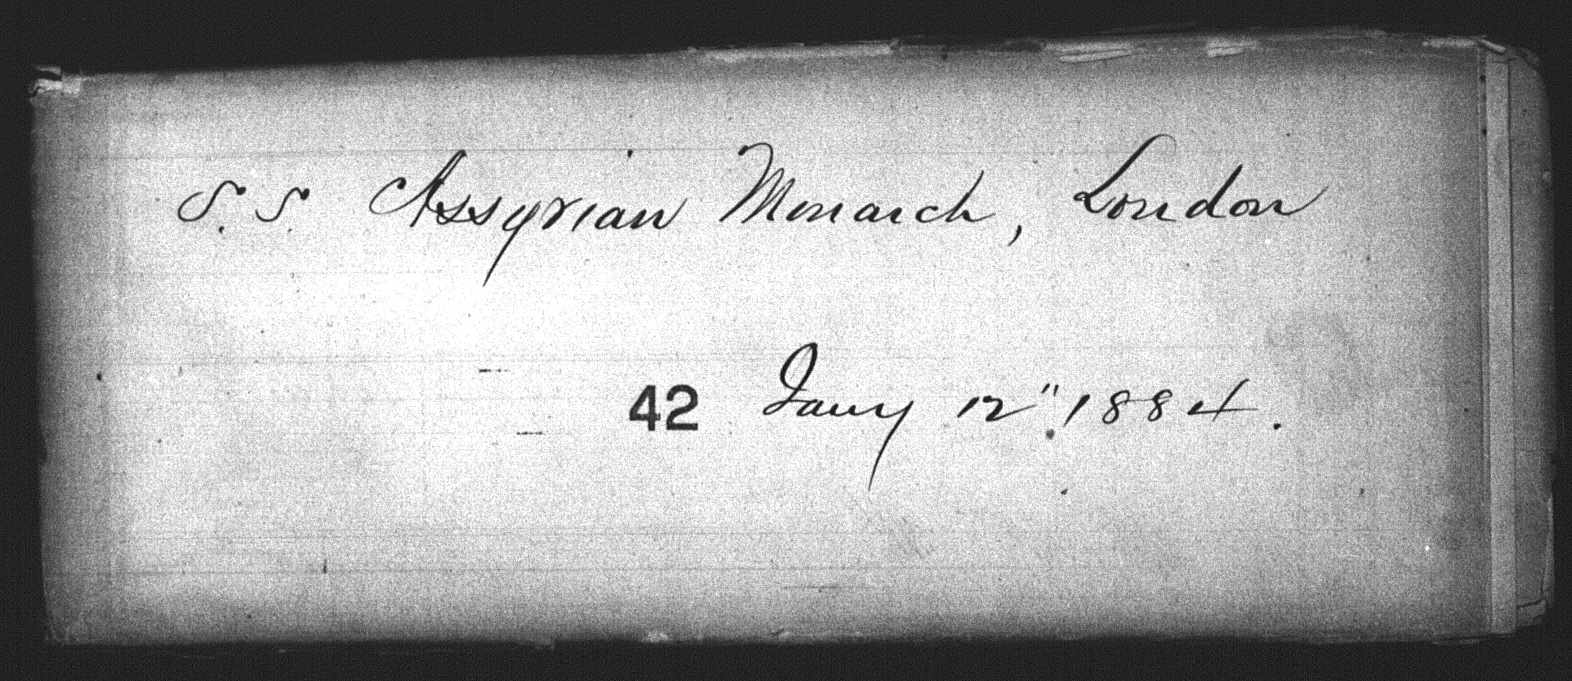 S.S. Assyrian Monarch, London
42 Jany 12" 1884.